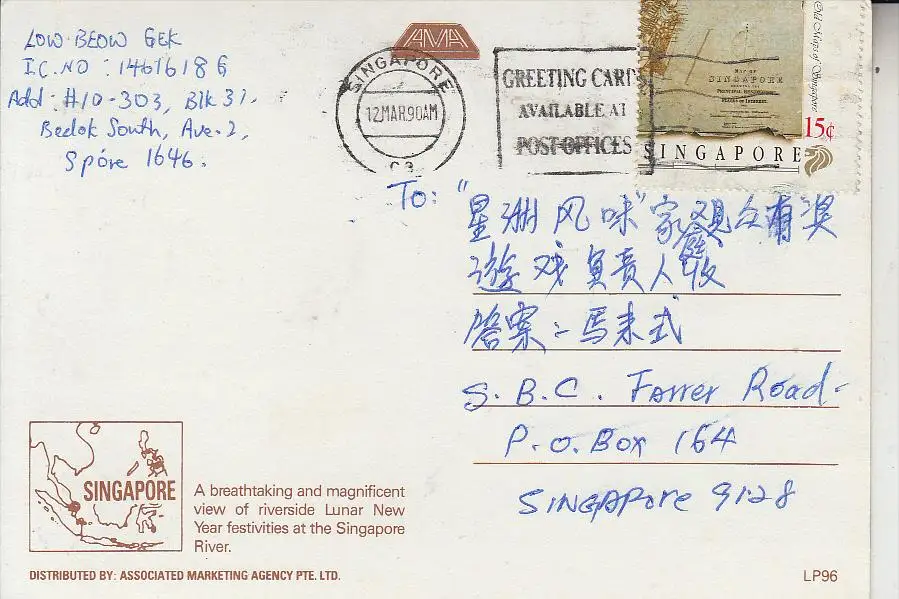 LOW BEOW GEK
I.C. NO : 1461618G
Add : #10-303, Blk 31,
Bedok South, Ave. 2,
S'pore 1646.
AMA
SINGAPORE
12MAR.90AM
C3
GREETING CARDS
AVAILABLE AT
POST OFFICES
Old Maps of Singapore
MAP OF
SINGAPORE
PRINCIPAL RESIDENCES
PLACES OF INTEREST
15¢
SINGAPORE
To: "星洲风味"家庭观众有奖
遊戏负责人收
答案：马来式
S.B.C. Farrer Road
P.O. Box 164
SINGAPore 9128
SINGAPORE
A breathtaking and magnificent
view of riverside Lunar New
Year festivities at the Singapore
River.
DISTRIBUTED BY: ASSOCIATED MARKETING AGENCY PTE. LTD.
LP96